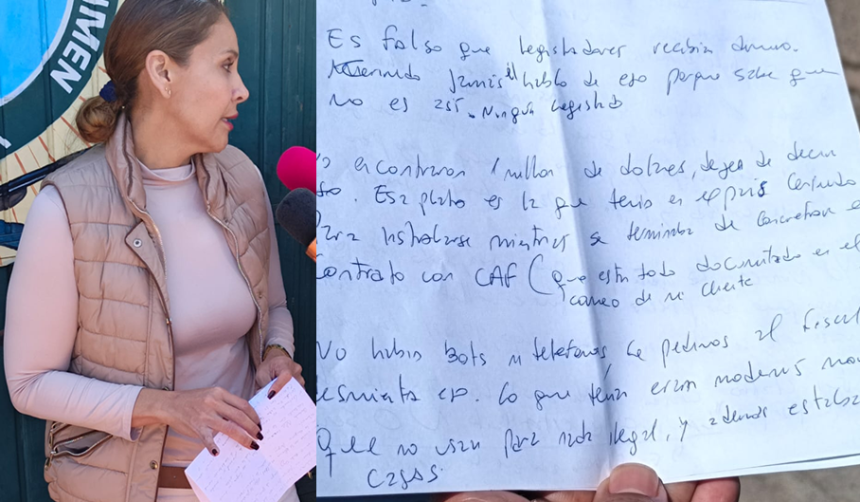 UMEN
Es falso que legisladores recibían dinero.
jamás él hablo de eso porque sabe que
no es así. Ningún legislad
encontraron 1 millon de dolares, dejen de decir
eso. Esa plata es la que tenía en el país
Para instalarse mientras se terminaba de concretar e
Contrato con CAF (que está todo documentado en el
correo de mi cliente
No había Bots ni telefonos, le pedimos al Fiscal
desmienta eso. Lo que tenía eran modems
Que no usan para nada ilegal, y además estaba
Cajas